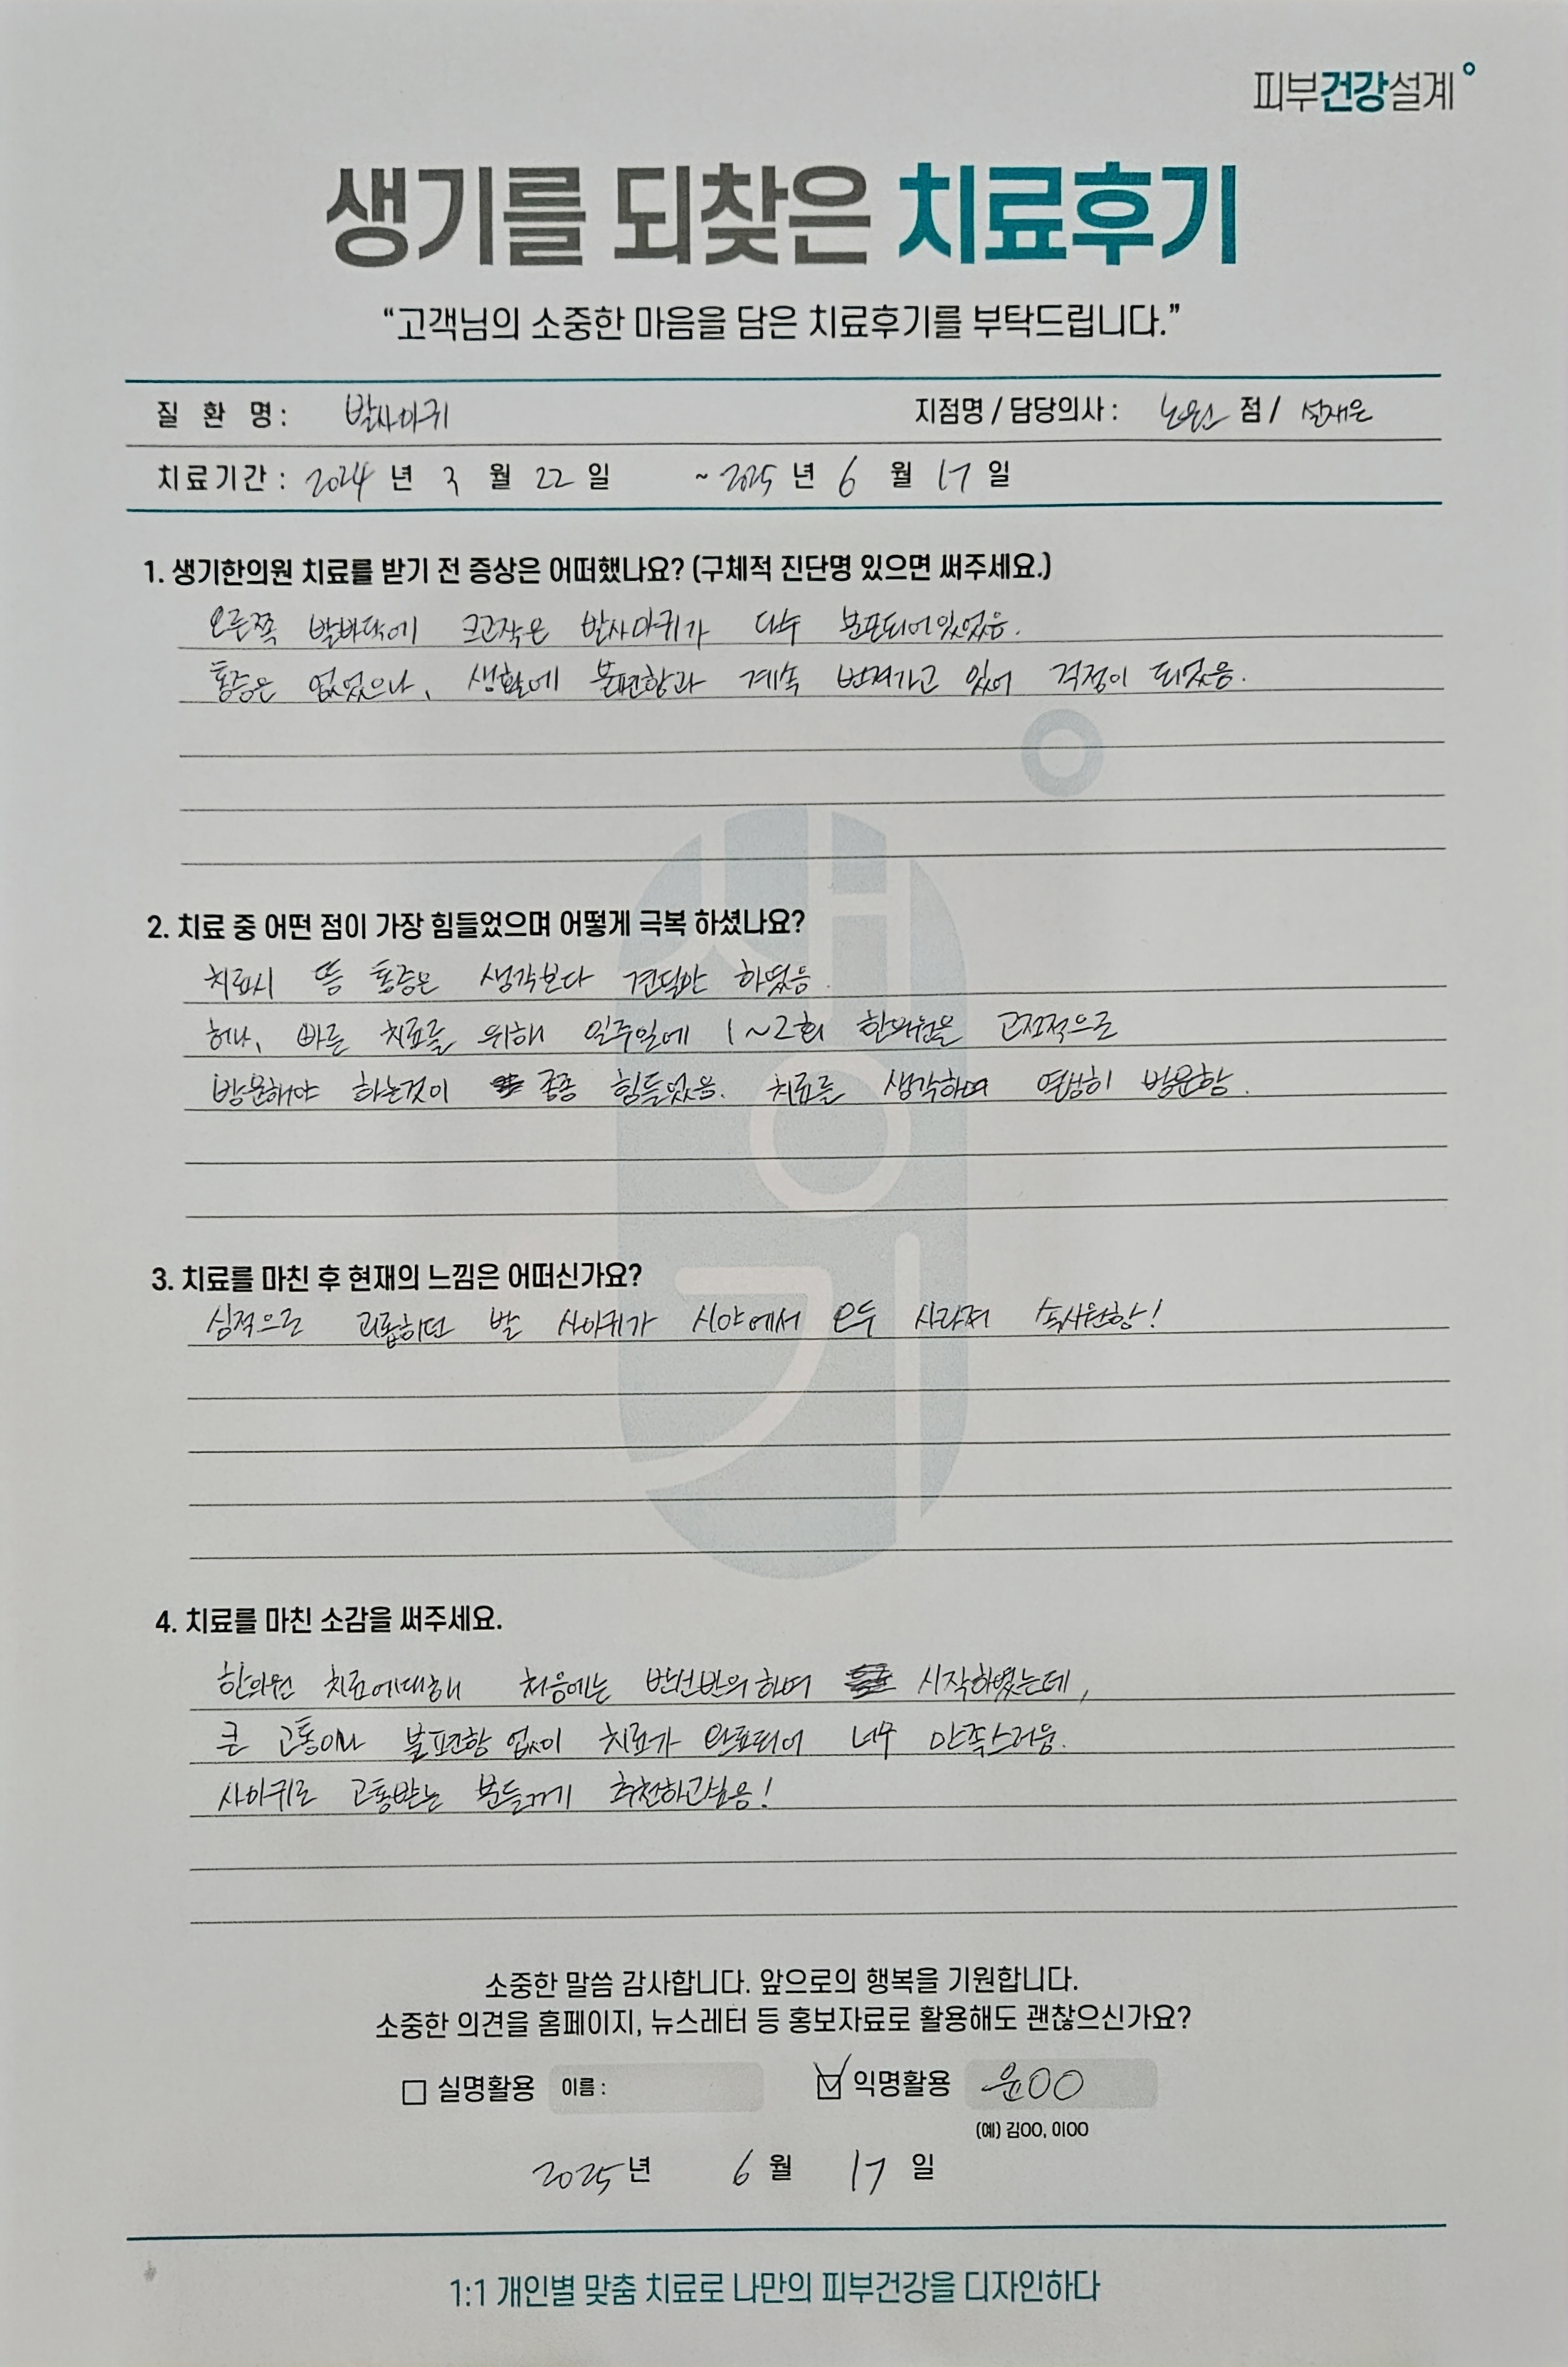 피부건강설계
생기를 되찾은 치료후기
“고객님의 소중한 마음을 담은 치료후기를 부탁드립니다.”
질 환 명 : 발사마귀 지점명 / 담당의사 : 노원 점 / 설재은
치료기간 : 2024 년 3 월 22 일 ~ 2025 년 6 월 17 일
1. 생기한의원 치료를 받기 전 증상은 어떠했나요? (구체적 진단명 있으면 써주세요.)
오른쪽 발바닥에 크고작은 발사마귀가 다수 분포되어있었음.
통증은 없었으나, 생활에 불편함과 계속 번져가고 있어 걱정이 되었음.
2. 치료 중 어떤 점이 가장 힘들었으며 어떻게 극복 하셨나요?
치료시 뜸 통증은 생각보다 견딜만 하였음.
허나, 빠른 치료를 위해 일주일에 1~2회 한의원을 고정적으로
방문해야 하는것이 종종 힘들었음. 치료를 생각하며 열심히 방문함.
3. 치료를 마친 후 현재의 느낌은 어떠신가요?
심적으로 괴롭히던 발 사마귀가 시야에서 모두 사라져 속시원함!
4. 치료를 마친 소감을 써주세요.
한의원 치료에대해 처음에는 반신반의 하며 시작하였는데,
큰 고통이나 불편함 없이 치료가 완료되어 너무 만족스러움.
사마귀로 고통받는 분들께 추천하고싶음!
소중한 말씀 감사합니다. 앞으로의 행복을 기원합니다.
소중한 의견을 홈페이지, 뉴스레터 등 홍보자료로 활용해도 괜찮으신가요?
□ 실명활용 이름 : ☑ 익명활용 윤OO
(예) 김OO, 이OO
2025 년 6 월 17 일
1:1 개인별 맞춤 치료로 나만의 피부건강을 디자인하다
생기